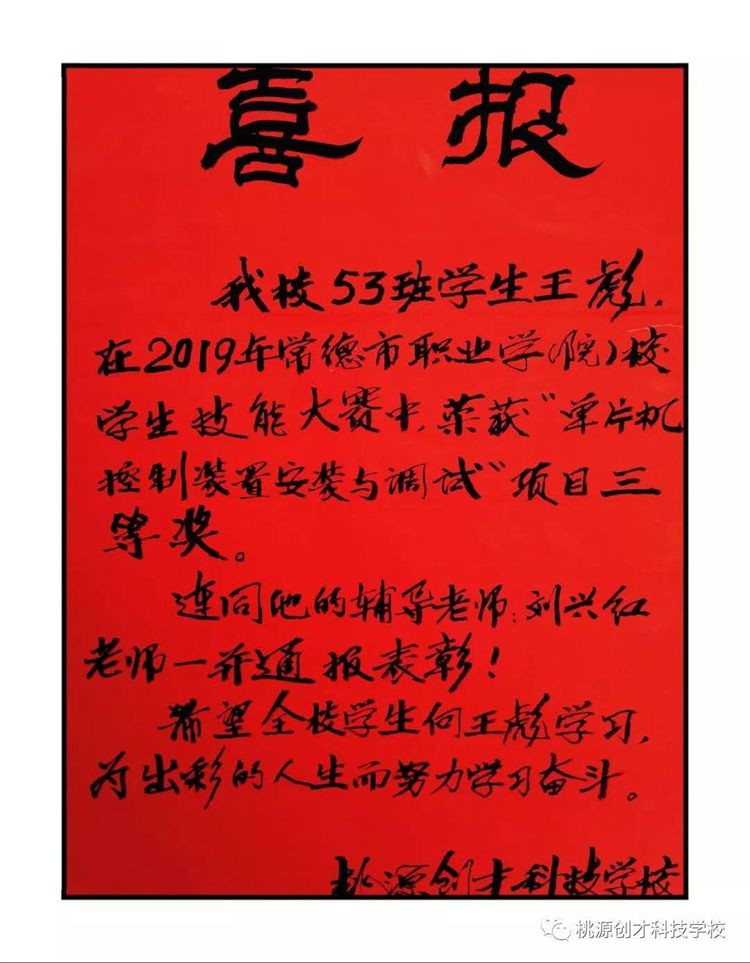 喜报
我校53班学生王彪，
在2019年常德市职业学(院)校
学生技能大赛中，荣获"单片机
控制装置安装与调试"项目三
等奖。
连同他的辅导老师：刘兴红
老师一并通报表彰！
希望全校学生向王彪学习，
为出彩的人生而努力学习奋斗。
桃源创才科技学校
桃源创才科技学校